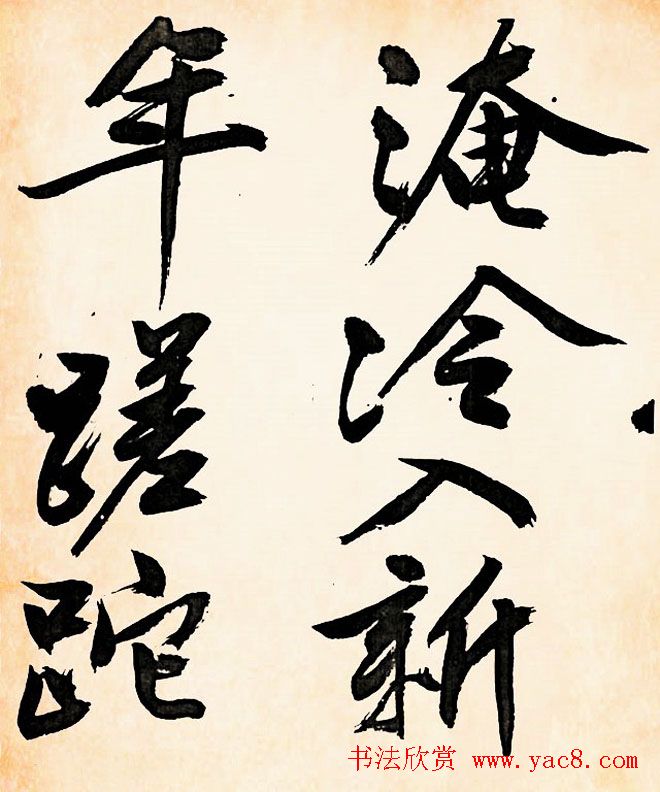 淹洽入新
年蹉跎
书法欣赏 www.yac8.com